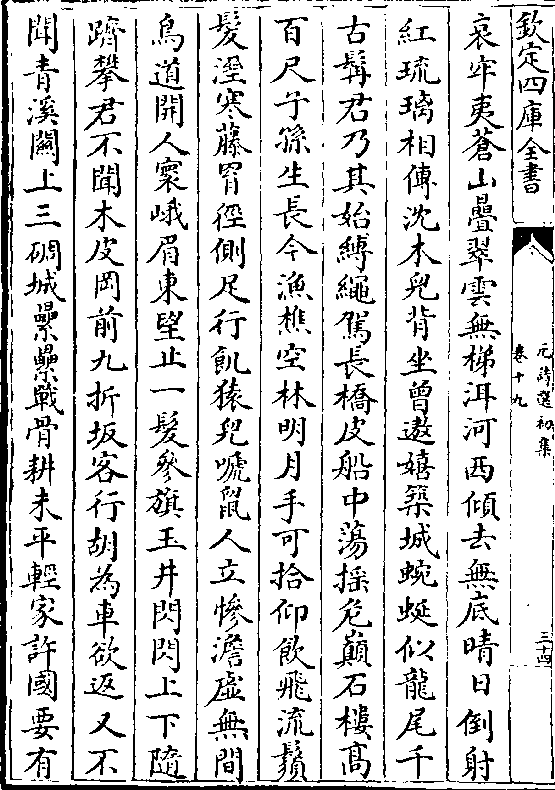 欽定四庫全書
元詩選初集
卷十九
三十四
哀牢夷蒼山疊翠雲無梯洱河西傾去無底晴日倒射
紅琉璃相傳沈木兒背坐曾遨嬉築城蜿蜒似龍尾千
古髯君乃其始縳繩駕長橋皮船中蕩揺危巔石樓髙
百尺子孫生長今漁樵空林明月手可拾仰飲飛流鬚
髮溼寒藤罥徑側足行飢猿兒嗁鼠人立慘澹虛無間
鳥道開人寰峨眉東望止一髮參旗玉井閃閃上下隨
躋攀君不聞木皮岡前九折坂客行胡為車欲返又不
聞青溪關上三碉城纍纍戰骨耕未平輕家許國要有